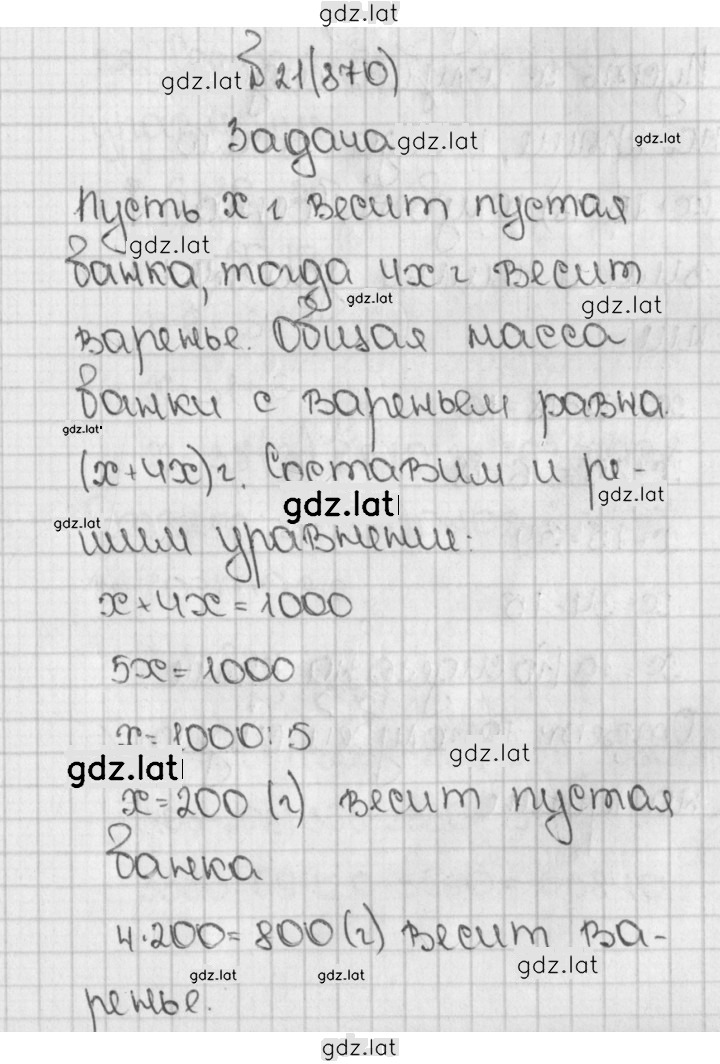 gdz.lat
gdz.lat № 21(870)
Задача gdz.lat gdz.lat
Пусть x г весит пустая
gdz.lat
банка, тогда 4x г весит
gdz.lat gdz.lat
варенье. Общая масса
банки с вареньем равна
gdz.lat
(x+4x) г. Составим и ре-
gdz.lat gdz.lat
gdz.lat
шим уравнение:
x+4x=1000
5x=1000
x=1000:5
gdz.lat gdz.lat
x=200 (г) весит пустая
банка
4·200=800 (г) весит ва-
gdz.lat gdz.lat gdz.lat
ренье.
gdz.lat